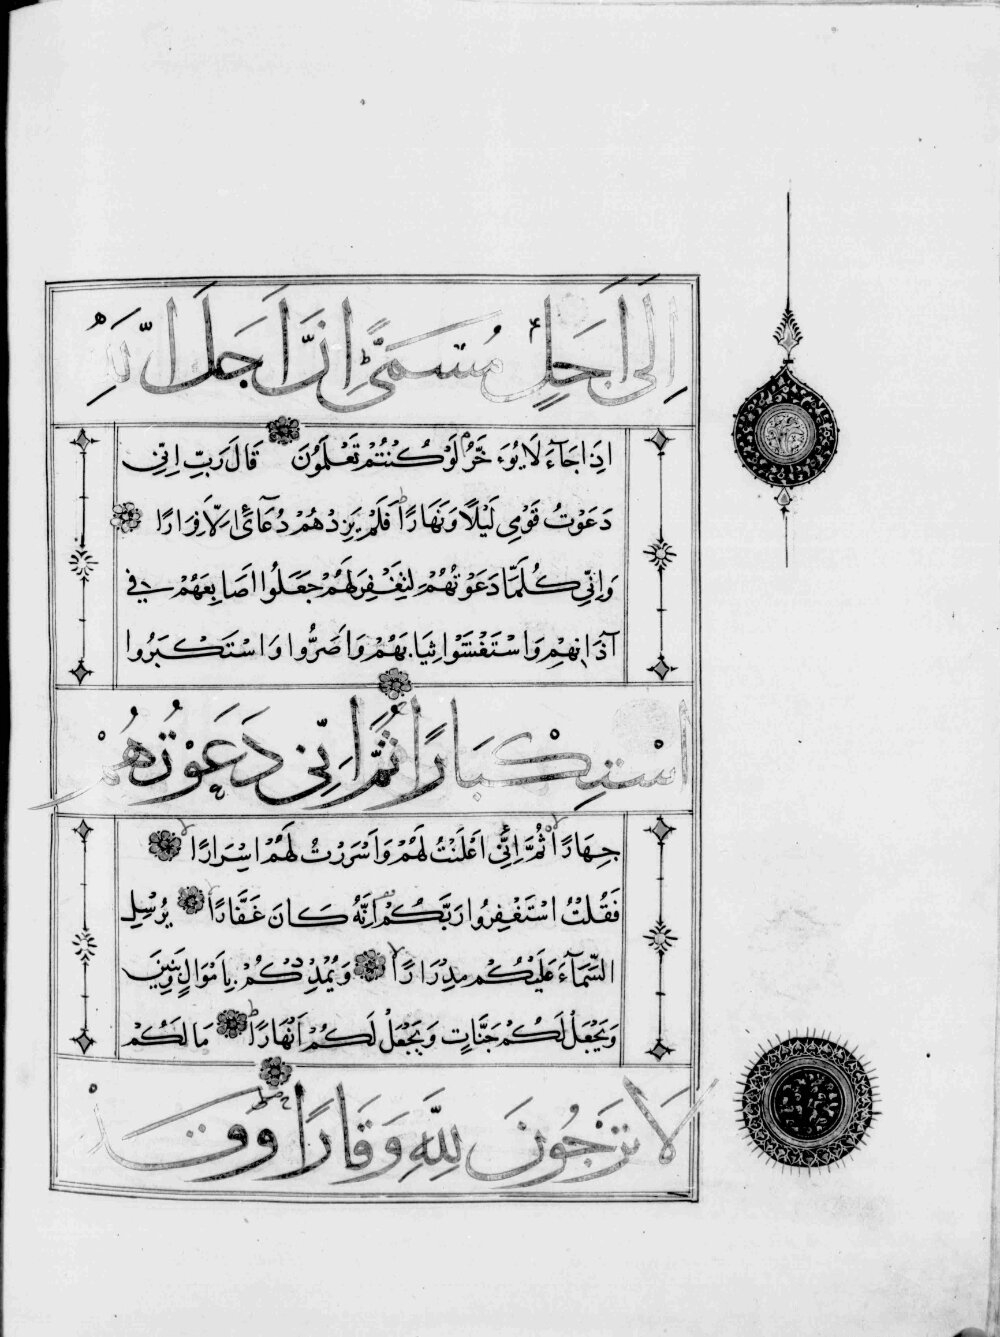 اِلَى اَجَلٍ مُسَمًّى اِنَّ اَجَلَ اللّٰهِ
اِذَا جَآءَ لَا يُؤَخَّرُ لَوْ كُنْتُمْ تَعْلَمُوْنَ قَالَ رَبِّ اِنِّى
دَعَوْتُ قَوْمِى لَيْلًا وَنَهَارًا فَلَمْ يَزِدْهُمْ دُعَآئِى اِلَّا فِرَارًا
وَاِنِّى كُلَّمَا دَعَوْتُهُمْ لِتَغْفِرَ لَهُمْ جَعَلُوا اَصَابِعَهُمْ فِى
آذَانِهِمْ وَاسْتَغْشَوْا ثِيَابَهُمْ وَاَصَرُّوا وَاسْتَكْبَرُوا
اسْتِكْبَارًا ثُمَّ اِنِّى دَعَوْتُهُمْ
جِهَارًا ثُمَّ اِنِّى اَعْلَنْتُ لَهُمْ وَاَسْرَرْتُ لَهُمْ اِسْرَارًا
فَقُلْتُ اسْتَغْفِرُوا رَبَّكُمْ اِنَّهُ كَانَ غَفَّارًا يُرْسِلِ
السَّمَآءَ عَلَيْكُمْ مِدْرَارًا وَيُمْدِدْكُمْ بِاَمْوَالٍ وَبَنِينَ
وَيَجْعَلْ لَكُمْ جَنَّاتٍ وَيَجْعَلْ لَكُمْ اَنْهَارًا مَا لَكُمْ
لَا تَرْجُونَ لِلّٰهِ وَقَارًا وَقَدْ